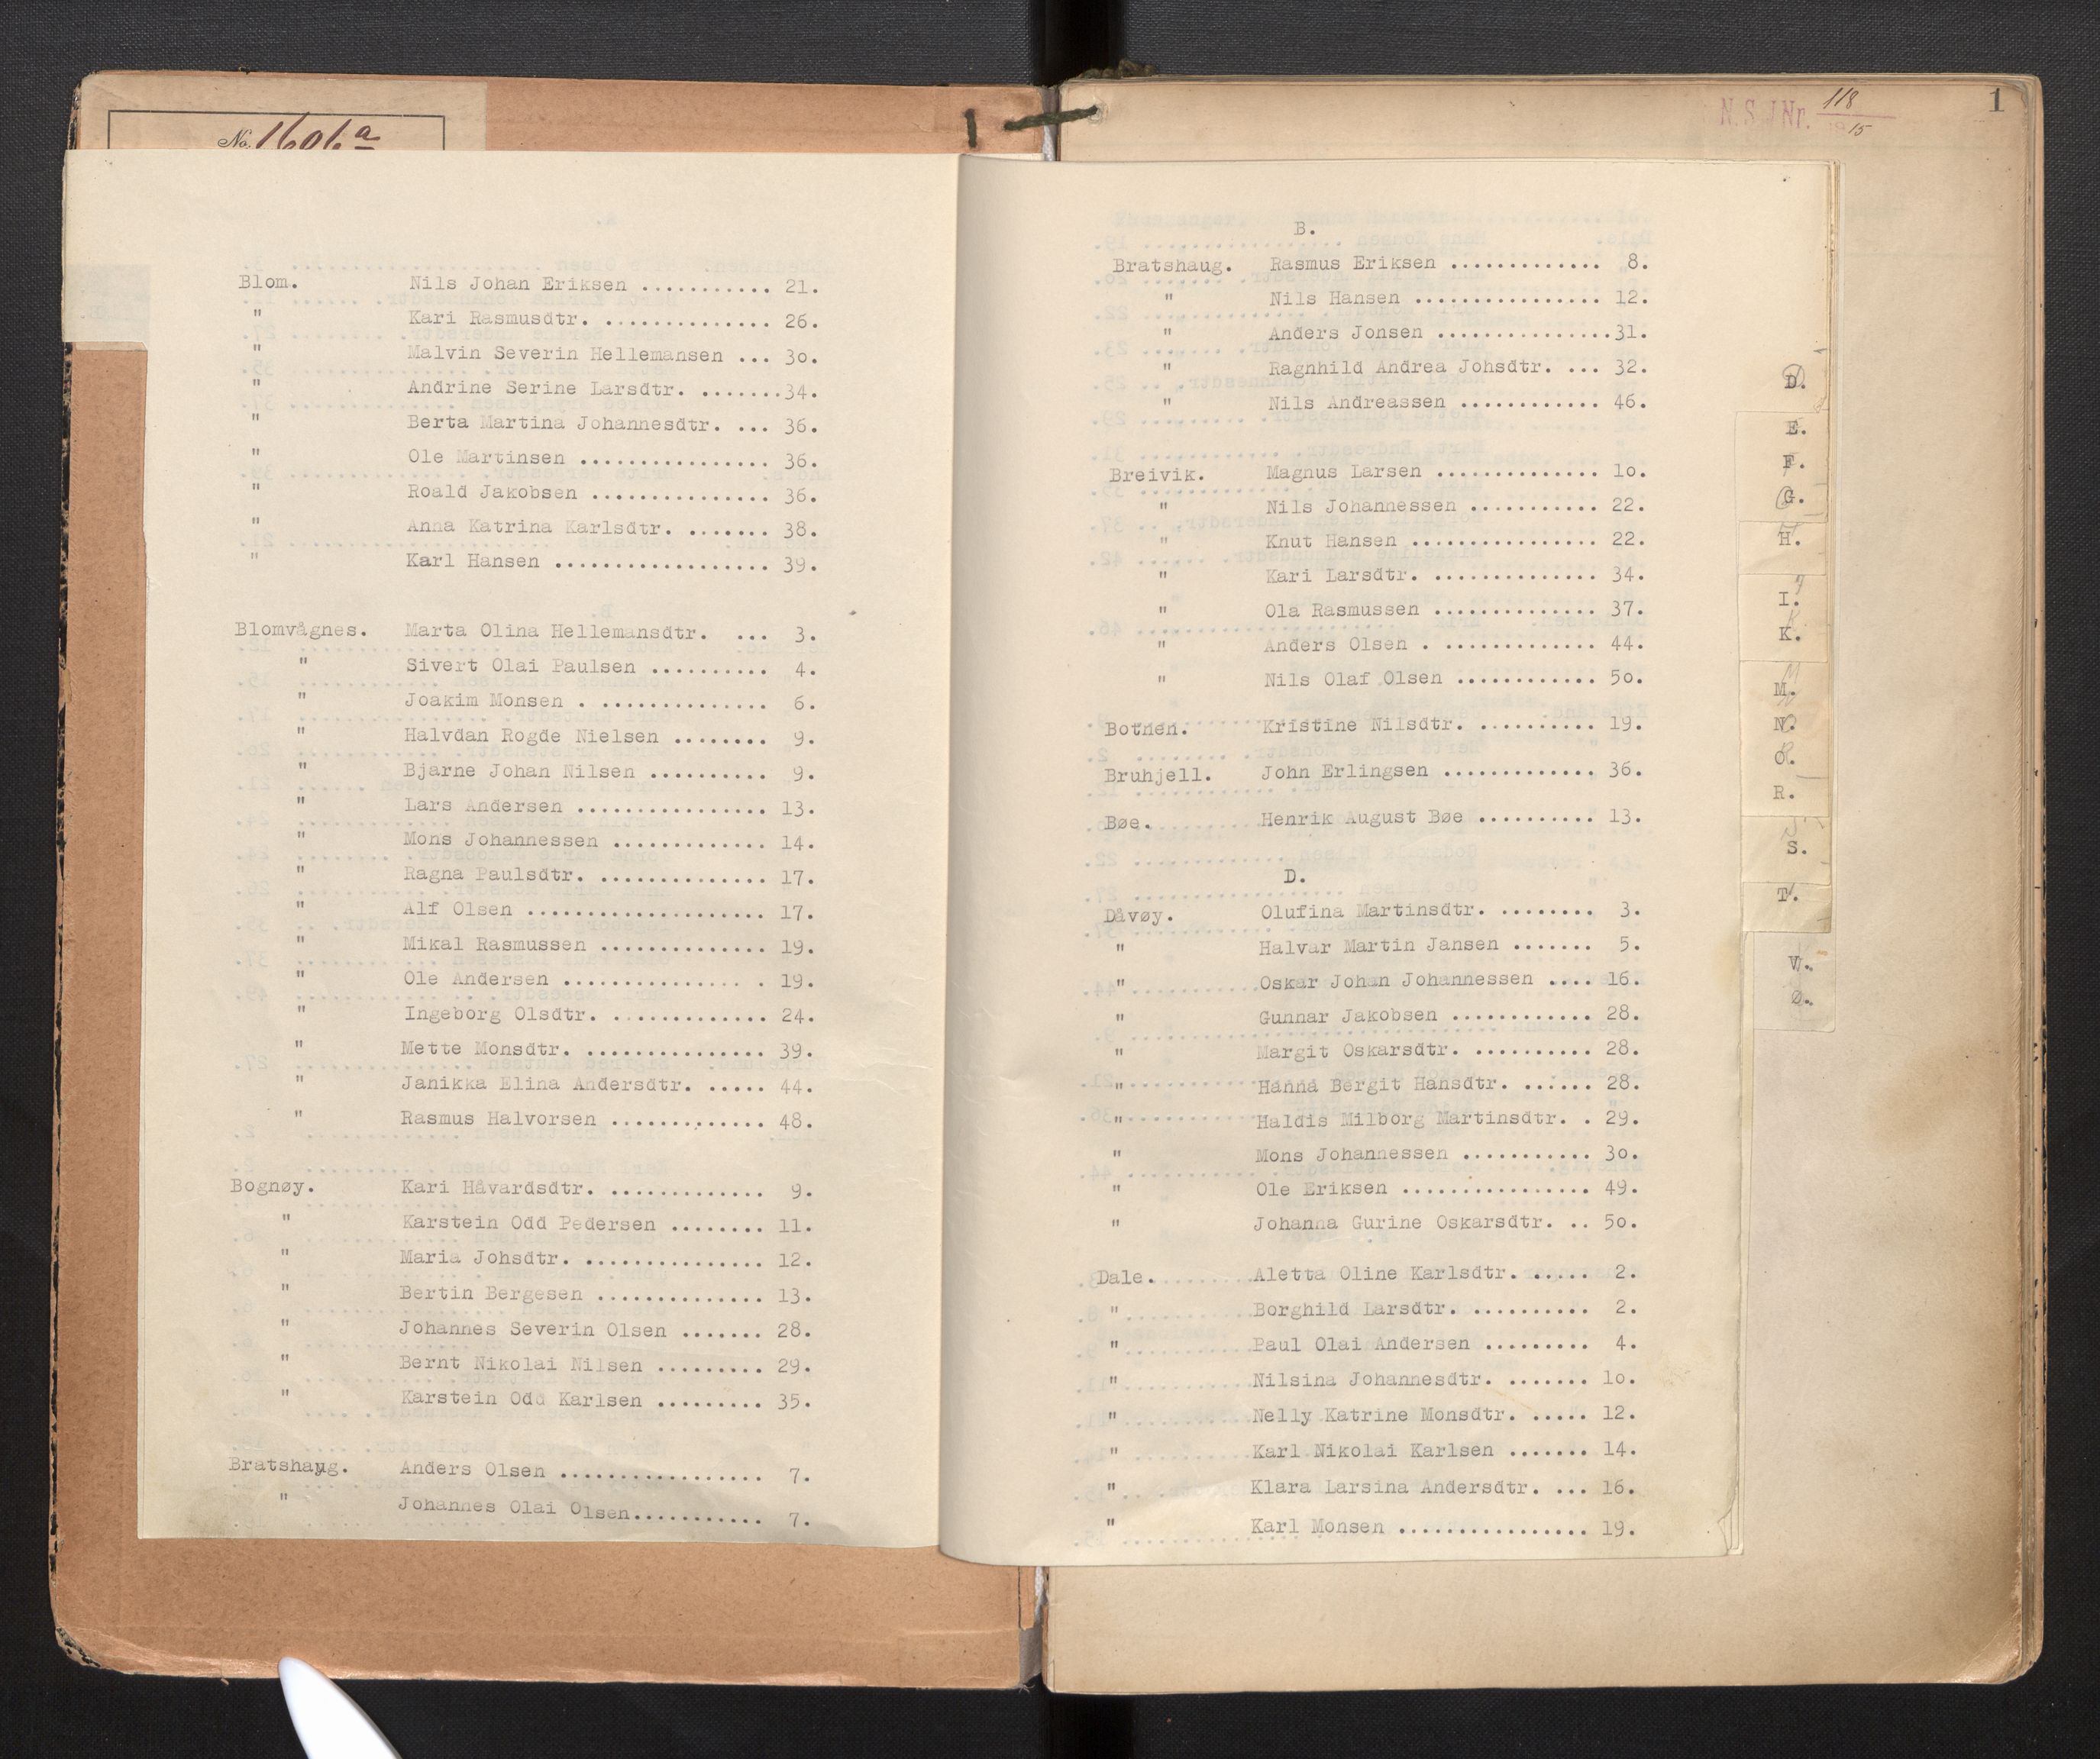 No. 1606a
Blom. Nils Johan Eriksen ........... 21.
" Kari Rasmusdtr. .............. 26.
" Malvin Severin Hellemansen ... 3o.
" Andrine Serine Larsdtr. .......34.
" Berta Martina Johannesdtr. ... 36.
" Ole Martinsen ................ 36.
" Roald Jakobsen ............... 36.
" Anna Katrina Karlsdtr. ....... 38.
" Karl Hansen .................. 39.
Blomvågnes. Marta Olina Hellemansdtr. ... 3.
" Sivert Olai Paulsen .......... 4.
" Joakim Monsen . .............. 6.
" Halvdan Rogde Nielsen ........ 9.
" Bjarne Johan Nilsen .......... 9.
" Lars Andersen ................ 13.
" Mons Johannessen ............. 14.
" Ragna Paulsdtr. .............. 17.
" Alf Olsen .................... 17.
" Mikal Rasmussen .............. 19.
" Ole Andersen ............... . 19.
" Ingeborg Olsdtr. ............. 24.
" Mette Monsdtr. ............... 39.
" Janikka Elina Andersdtr. ..... 44.
" Rasmus Halvorsen ............. 48.
Bognøy. Kari Håvardsdtr. ............. 9.
" Karstein Odd Pedersen ........ 11.
" Maria Johsdtr. ............... 12.
" Bertin Bergesen .............. 13.
" Johannes Severin Olsen ....... 28.
" Bernt Nikolai Nilsen ......... 29.
" Karstein Odd Karlsen ......... 35.
Bratshaug. Anders Olsen ................. 7.
" Johannes Olai Olsen........... 7.
N.S JNr. 118
15
1
B.
Bratshaug. Rasmus Eriksen ............. 8.
" Nils Hansen ................ 12.
" Anders Jonsen ..............31.
" Ragnhild Andrea Johsdtr. ... 32.
" Nils Andreassen ............ 46.
Breivik. Magnus Larsen .............. 1o.
" Nils Johannessen ........... 22.
" Knut Hansen ................ 22.
" Kari Larsdtr. .............. 34.
" Ola Rasmussen .............. 37.
" Anders Olsen . ............. 44.
" Nils Olaf Olsen ............ 5o.
Botnen. Kristine Nilsdtr. .......... 19.
Bruhjell. John Erlingsen ............. 36.
Bøe. Henrik August Bøe .......... 13.
D.
Dåvøy. Olufina Martinsdtr. ........ 3.
" Halvar Martin Jansen ....... 5.
" Oskar Johan Johannessen .... 16.
" Gunnar Jakobsen ............ 28.
" Margit Oskarsdtr. .......... 28.
" Hanna Bergit Hansdtr. ...... 28.
" Haldis Milborg Martinsdtr. . 29.
" Mons Johannessen ........... 3o.
" Ole Eriksen ................ 49.
" Johanna Gurine Oskarsdtr. .. 5o.
Dale. Aletta Oline Karlsdtr. ..... 2.
" Borghild Larsdtr. .......... 2.
" Paul Olai Andersen ......... 4.
" Nilsina Johannesdtr. ....... 1o.
" Nelly Katrine Monsdtr. ..... 12.
" Karl Nikolai Karlsen ....... 14.
" Klara Larsina Andersdtr. ... 16.
" Karl Monsen ................ 19.
D.
E.
F.
G.
H.
I.
K.
M.
N.
O.
R.
S.
T.
V.
Ø.